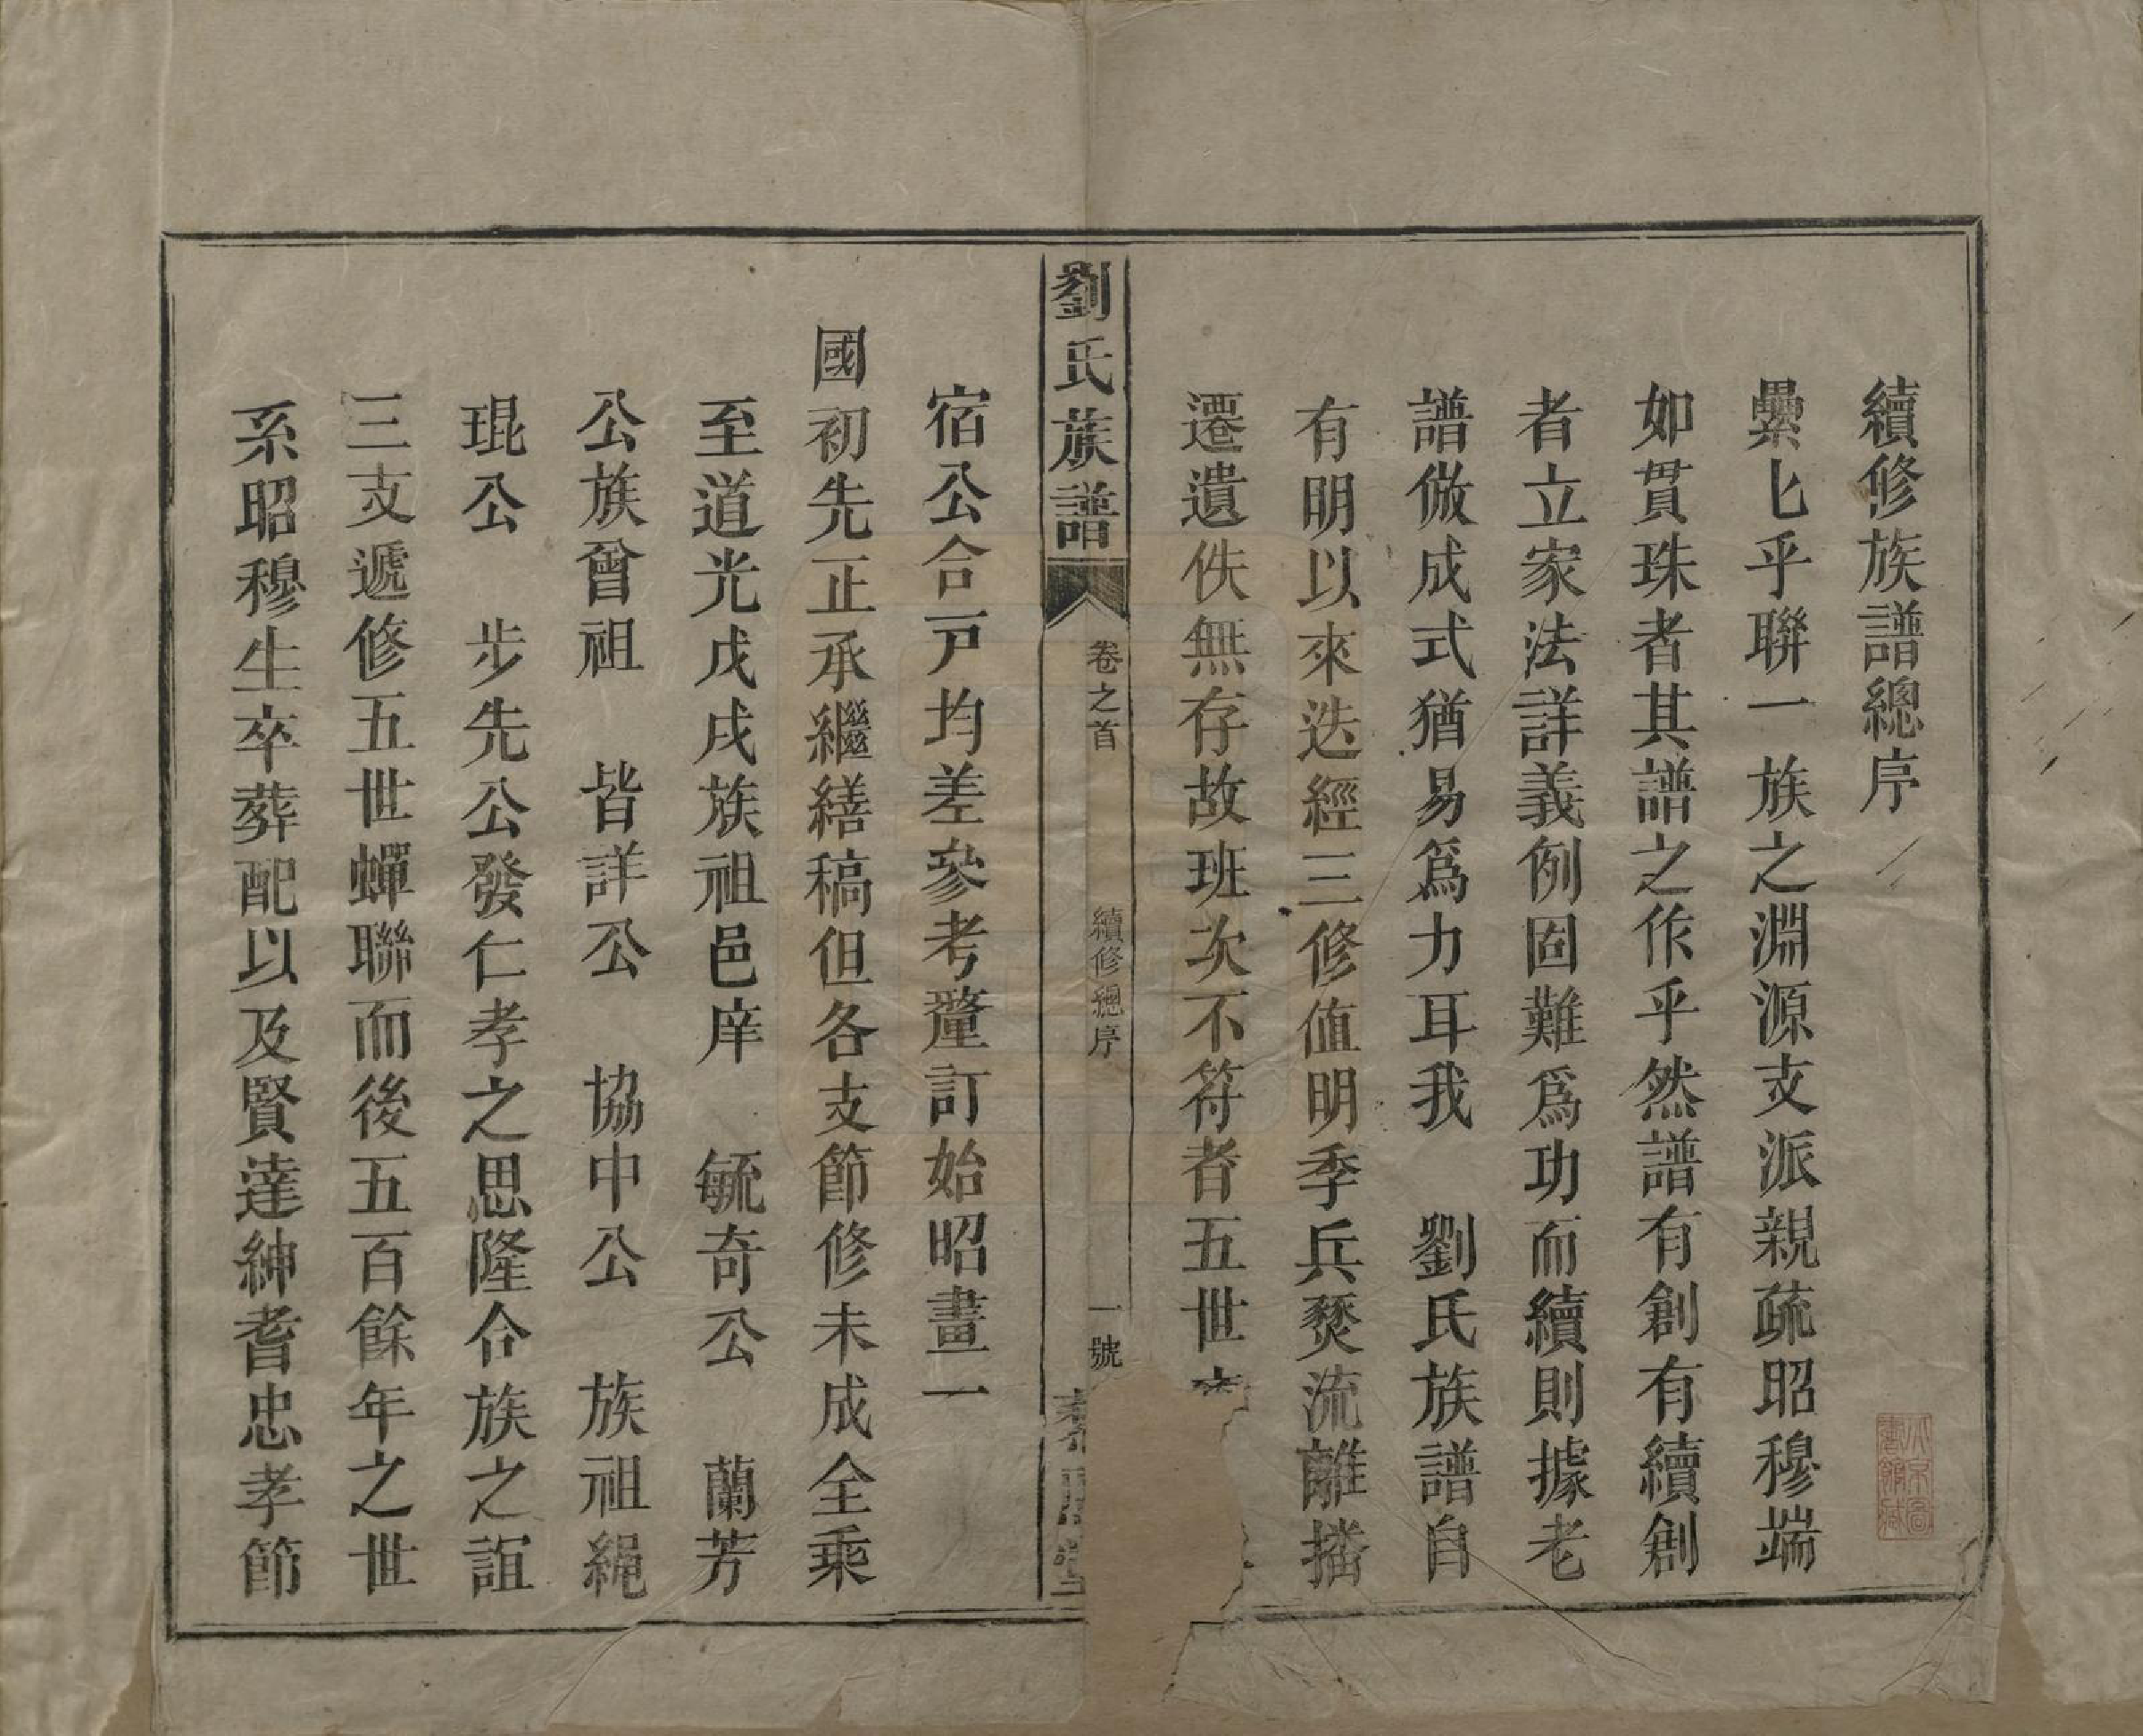 續修族譜總序
纍匕乎聯一族之淵源支派親疏昭穆端
如貫珠者其譜之作乎然譜有創有續創
者立家法詳義例固難爲功而續則據老
譜倣成式猶易爲力耳我 劉氏族譜自
有明以來迭經三修值明季兵燹流離播
遷遺佚無存故班次不符者五世
劉氏族譜
卷之首
續修總序
一號
堂
宿公合戸均差參考釐訂始昭畫一
國初先正承繼繕稿但各支節修未成全乘
至道光戊戌族祖邑庠 毓奇公 蘭芳
公族曾祖 皆詳公 協中公 族祖繩
琨公 步先公發仁孝之思隆合族之誼
三支遞修五世蟬聯而後五百餘年之世
系昭穆生卒葬配以及賢達紳耆忠孝節